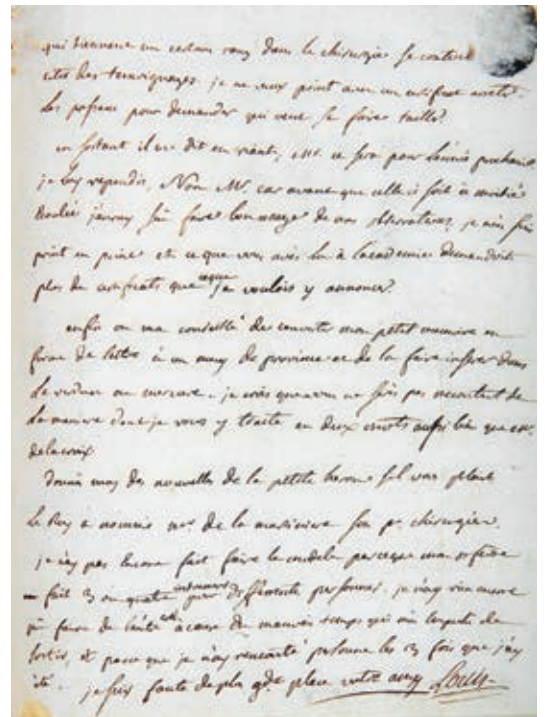 qui tiennent un certain rang dans la chirurgie se contente
des temoignages. je ne veux point avoir un certificat
les poser pour demander qui veut se faire tailler.
en sortant il me dit en riant, Mr. ce sera pour l'année prochaine
je luy repondis, Non Mr. car avant que celle cy soit à moitié
j'auray sçu faire bon usage de vos observations, je n'en suis
point en peine et ce que vous avés lu à l'academie demandoit
plus de certificats que ce que je voulois y annoncer.
enfin on m'a conseillé de convertir mon petit memoire en
forme de lettre à un amy de province et de la faire inserer dans
le verdun ou mercure. je crois que vous ne serés pas mecontent de
la maniere dont je vous y traite en deux mots aussi bien que mr.
delacroix.
donnés moy des nouvelles de la petite s'il vous plait
Le Roy a nommé mr. de la martiniere son pr. chirurgien.
je n'ay pas encore fait faire la parceque
fait 3 ou quatre differentes personnes. je n'ay rien encore
pu faire de à cause du mauvais temps qui m'a empeché de
sortir, et parce que je n'ay rencontré personne les 3 fois que j'ay
été. je suis faute de plus gde place votre amy Louis